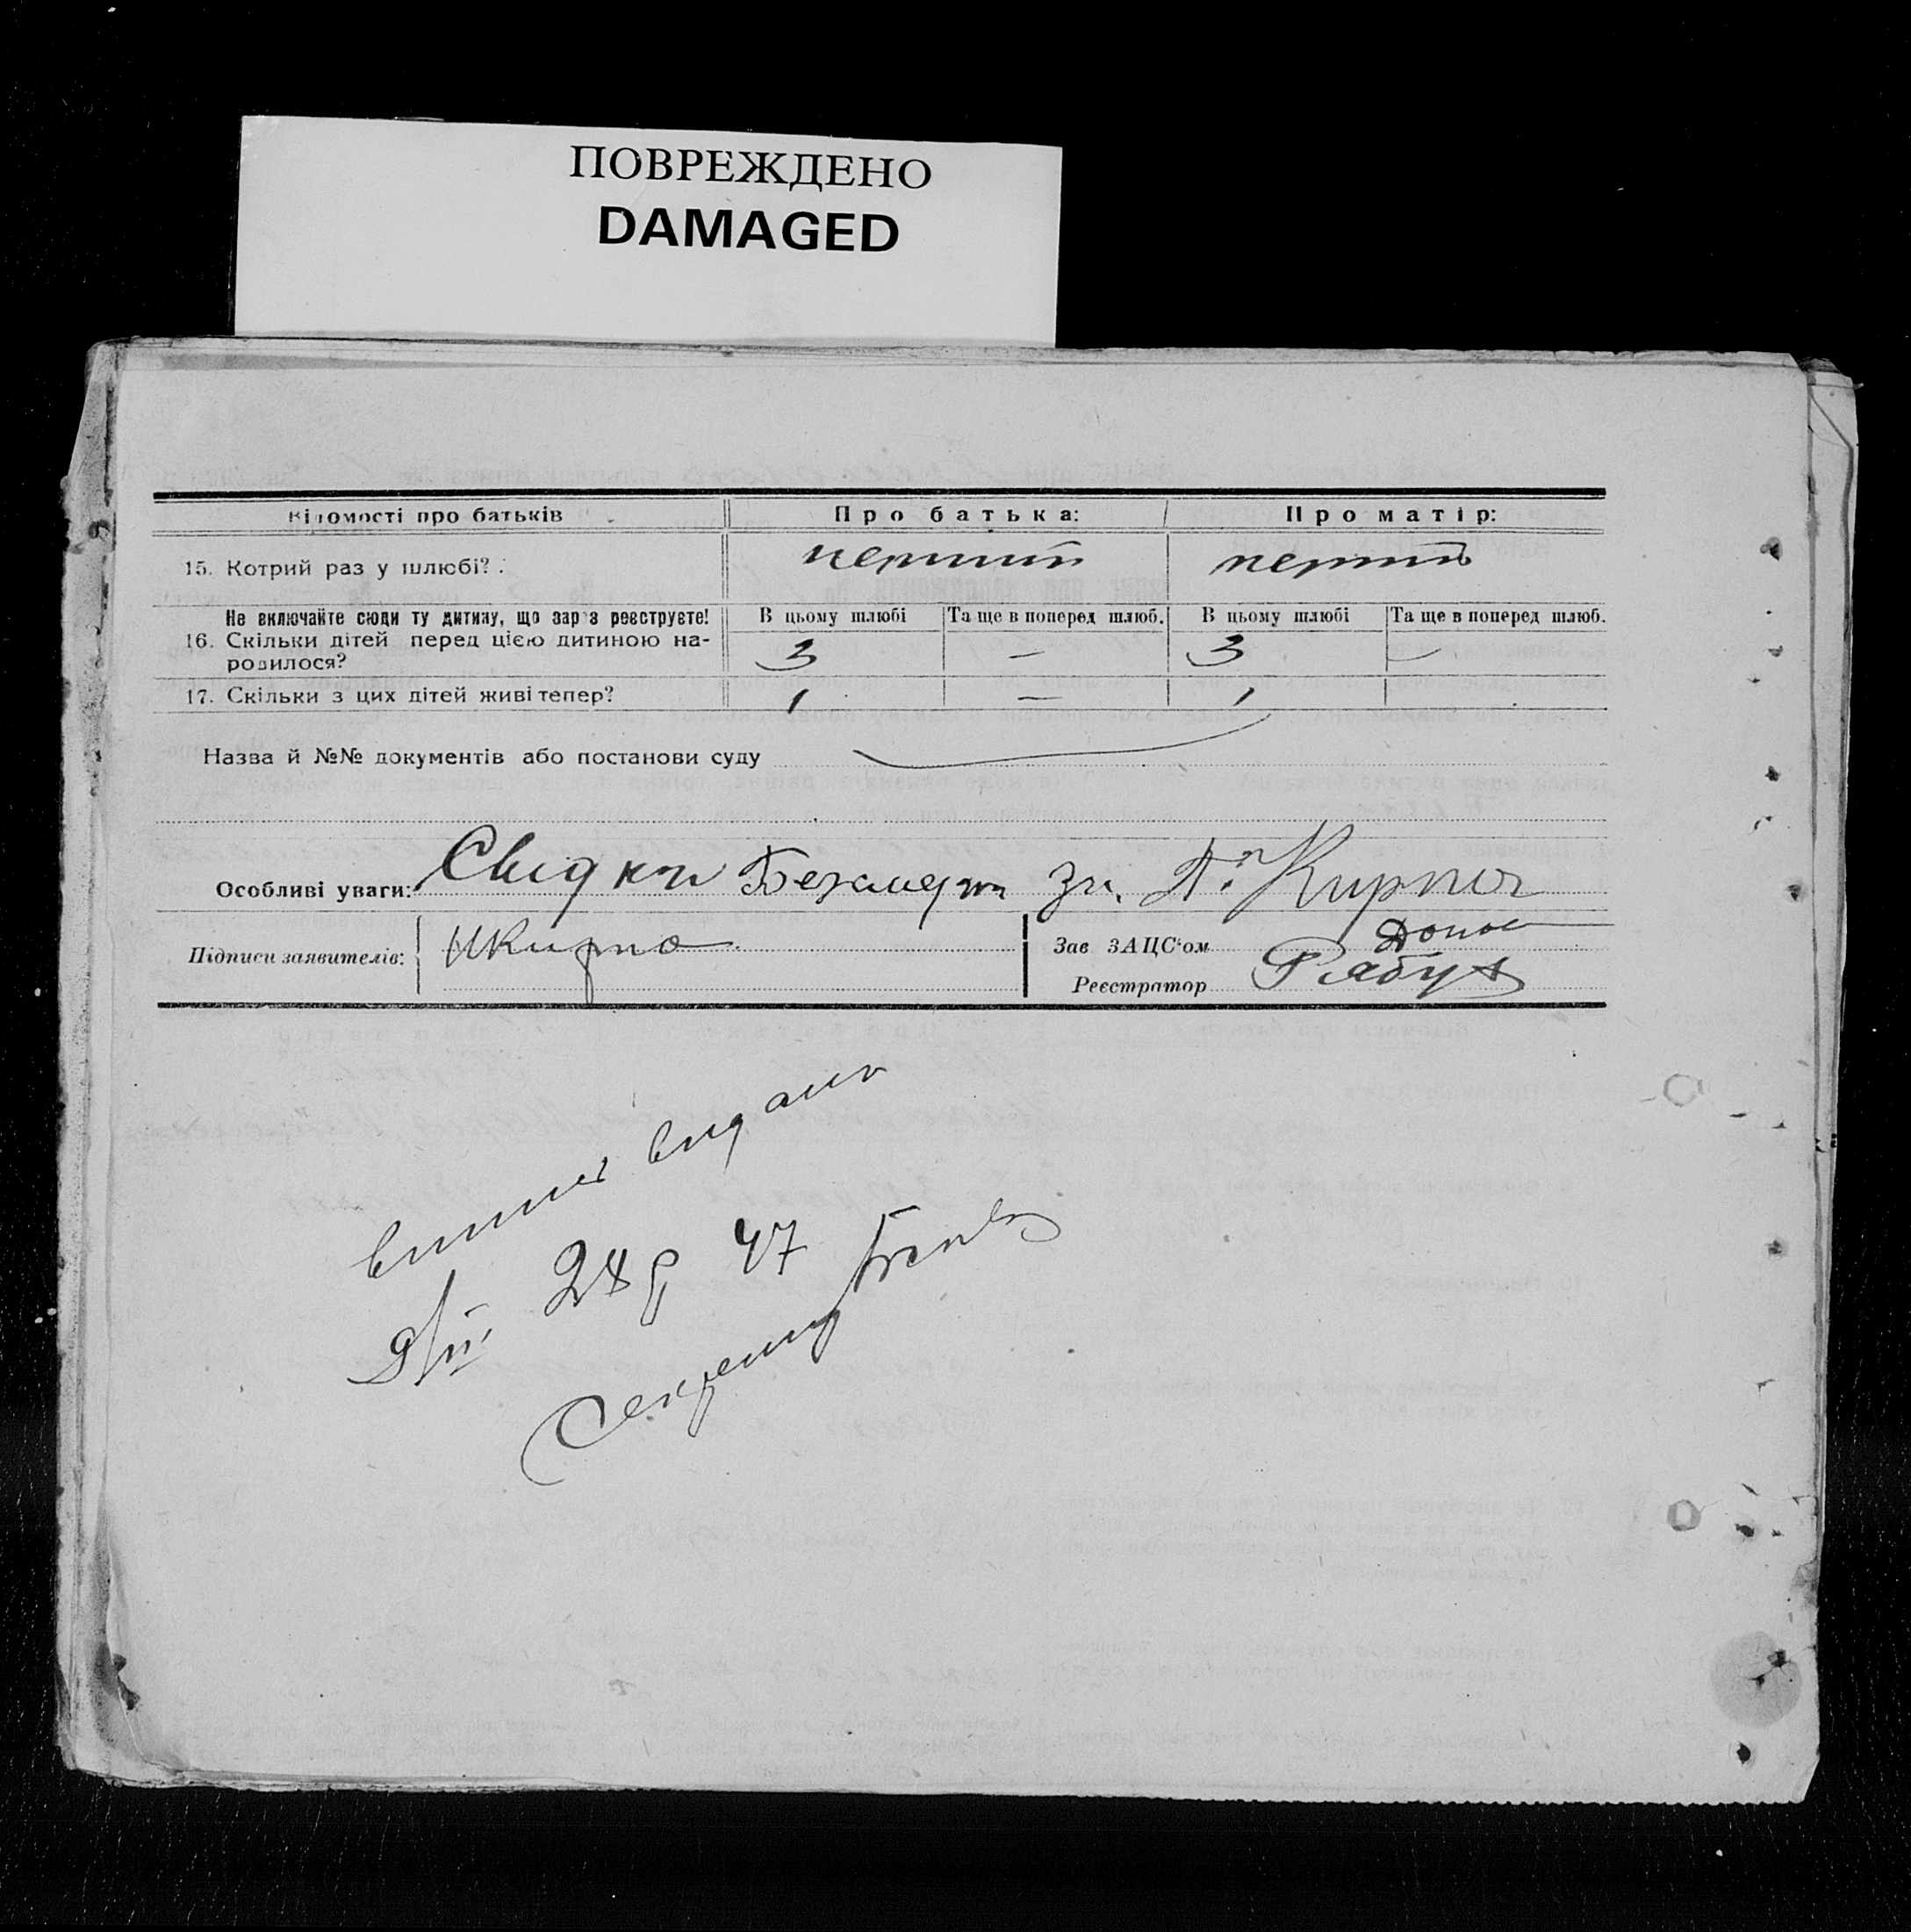 ПОВРЕЖДЕНО
DAMAGED
Відомості про батьків
Про батька:
Про матір:
15. Котрий раз у шлюбі?
перший
перший
Не включайте сюди ту дитину, що зараз реєструєте!
В цьому шлюбі
Та ще в поперед шлюб.
В цьому шлюбі
Та ще в поперед шлюб.
16. Скільки дітей перед цією дитиною на-
родилося?
3
—
3
—
17. Скільки з цих дітей живі тепер?
1
—
1
Назва й №№ документів або постанови суду
Особливі уваги:
Свідки
Підписи заявителів:
Зав ЗАЦС'ом
Реєстратор
Рябуха
видано
47